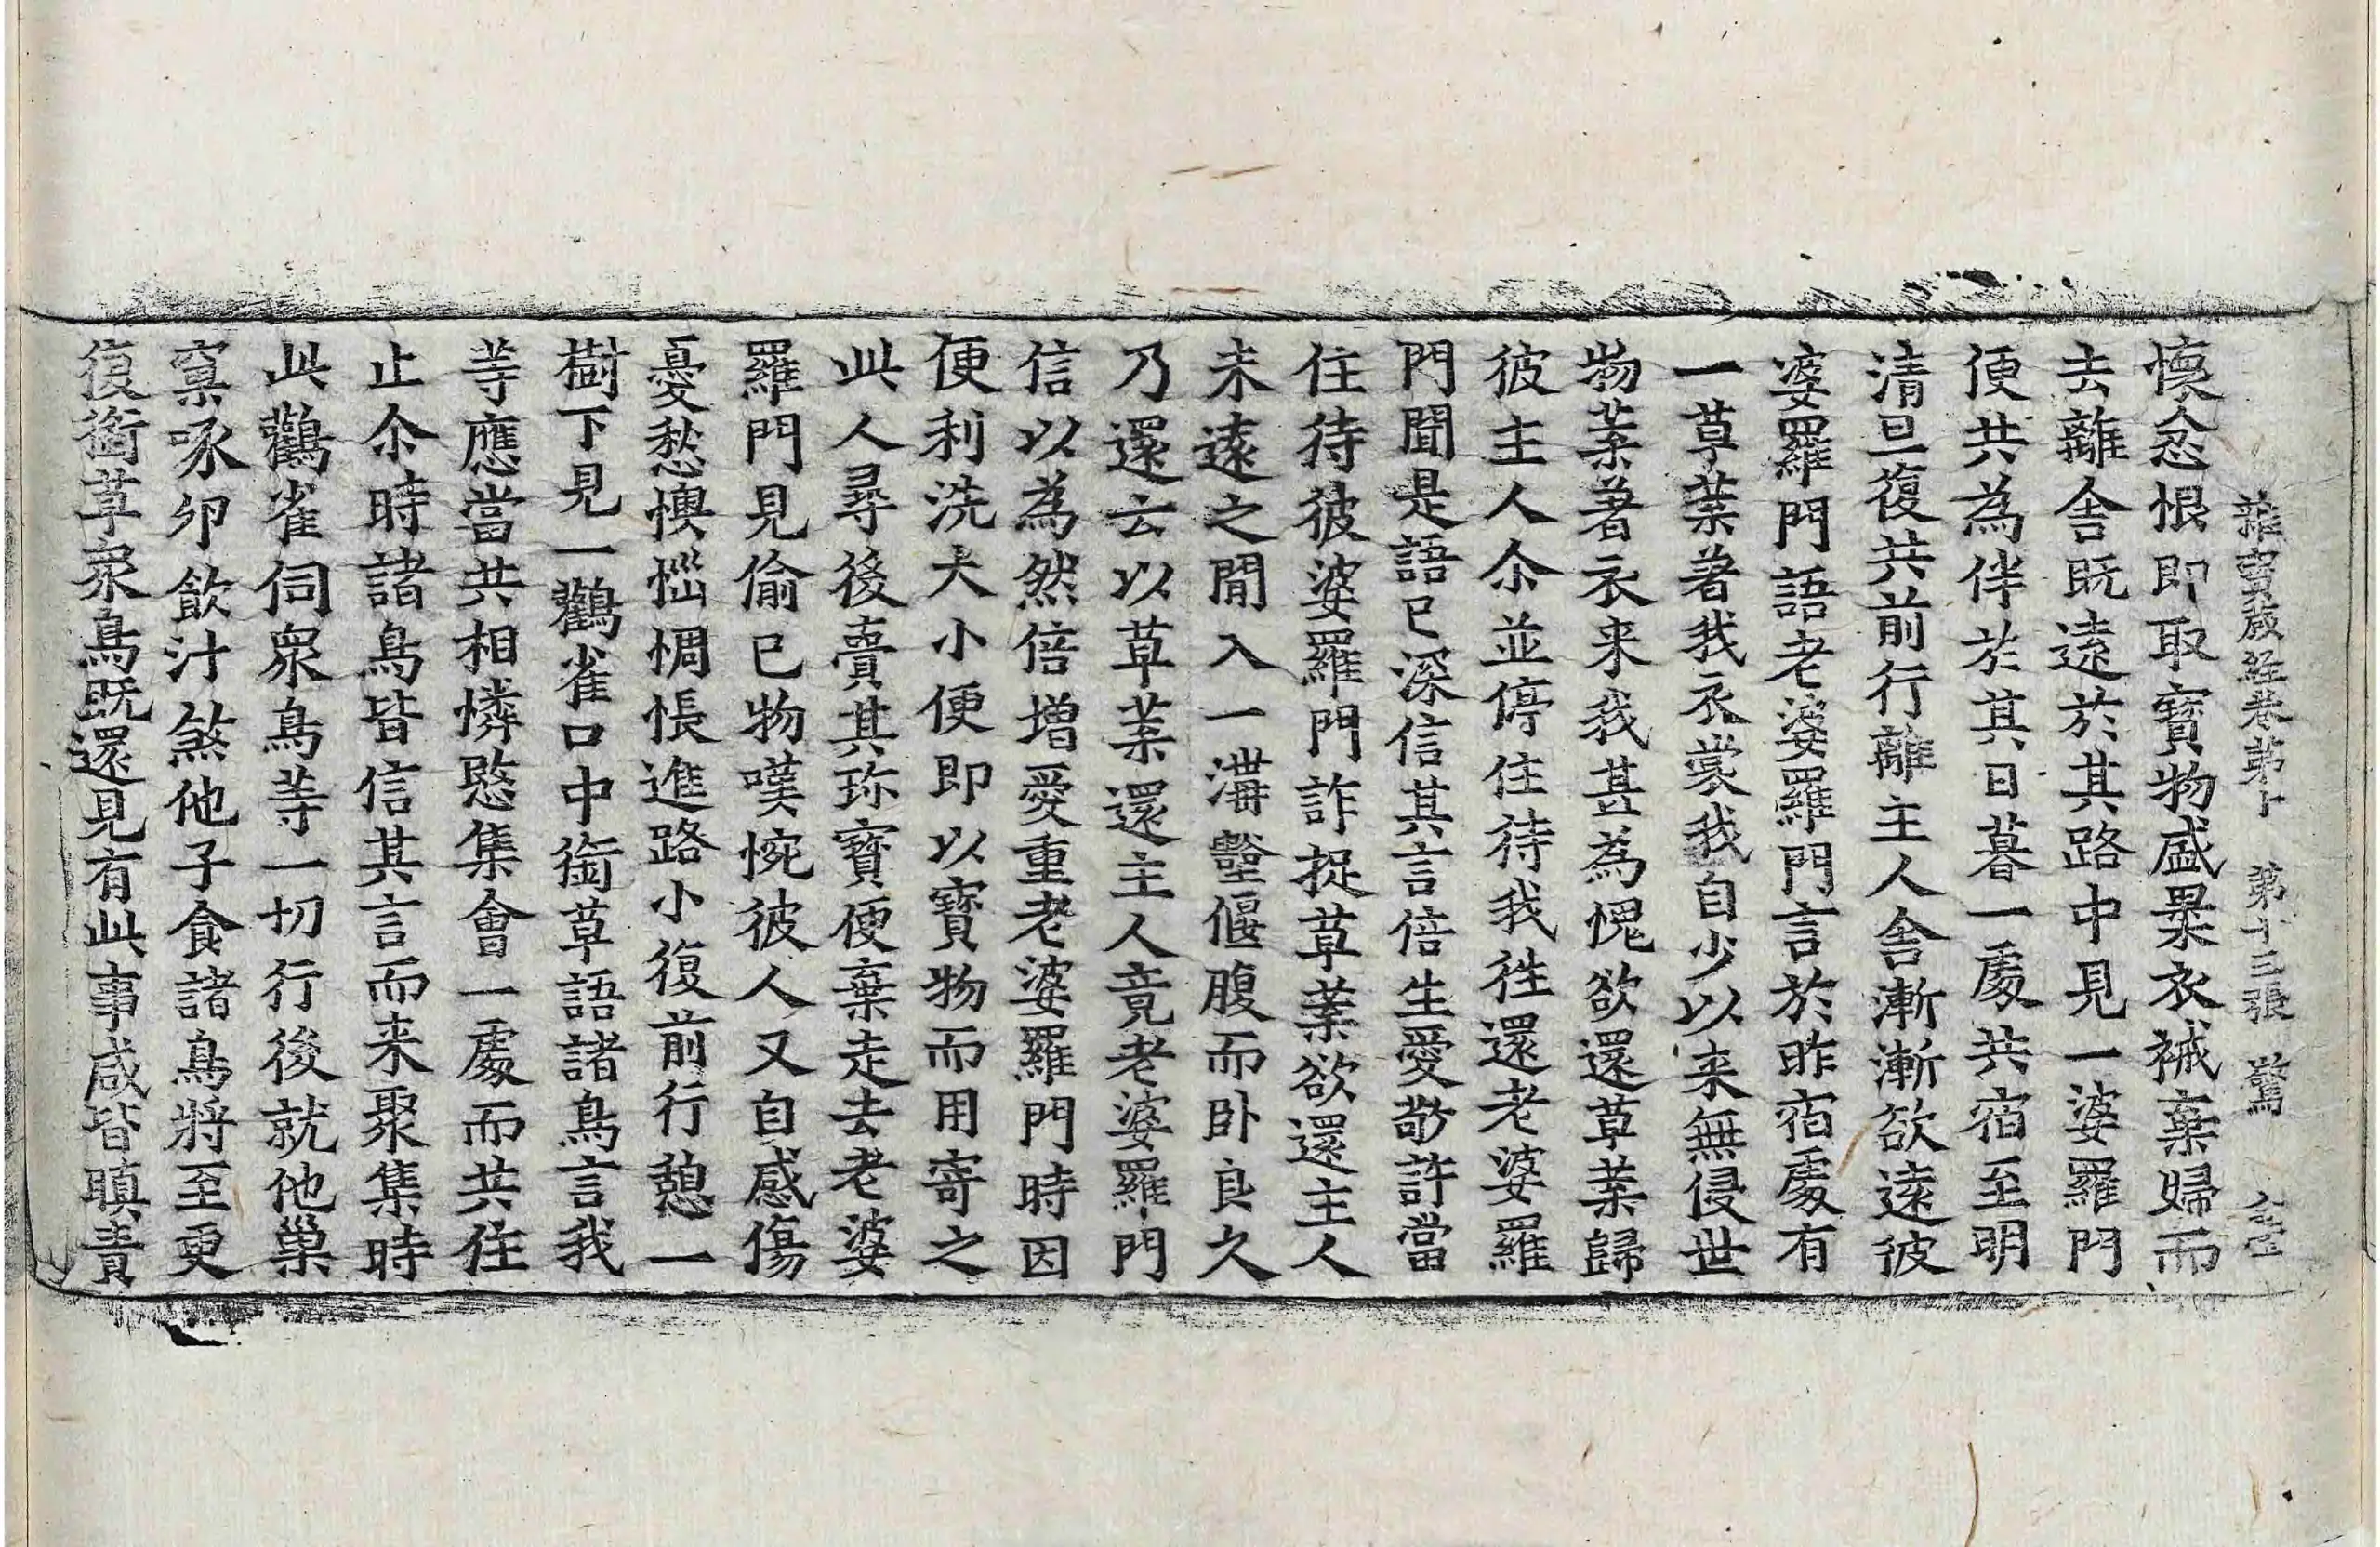 雜寶蔵經卷第十 第十三張 驚
懷忿恨即取寶物盛裹衣裓棄婦而
去離舍既遠於其路中見一婆羅門
便共為伴於其日暮一處共宿至明
清旦復共前行離主人舍漸漸欲遠彼
婆羅門語老婆羅門言於昨宿處有
一草葉著我衣裳我自少以来無侵世
物葉著衣来我甚為愧欲還草葉歸
彼主人尒並停住待我往還老婆羅
門聞是語已深信其言倍生愛敬許當
住待彼婆羅門詐捉草葉欲還主人
未遠之間入一溝壑偃腹而卧良久
乃還云以草葉還主人竟老婆羅門
信以為然倍增愛重老婆羅門時因
便利洗大小便即以寶物而用寄之
此人尋後賣其珎寶便棄走去老婆
羅門見偷已物嘆惋彼人又自感傷
憂愁懊惱惆悵進路小復前行憩一
樹下見一鸛雀口中銜草語諸鳥言我
等應當共相憐愍集會一處而共住
止尒時諸鳥皆信其言而来聚集時
此鸛雀伺衆鳥等一切行後就他巢
窠啄卵飲汁煞他子食諸鳥將至更
復銜草衆鳥既還見有此事咸皆瞋責